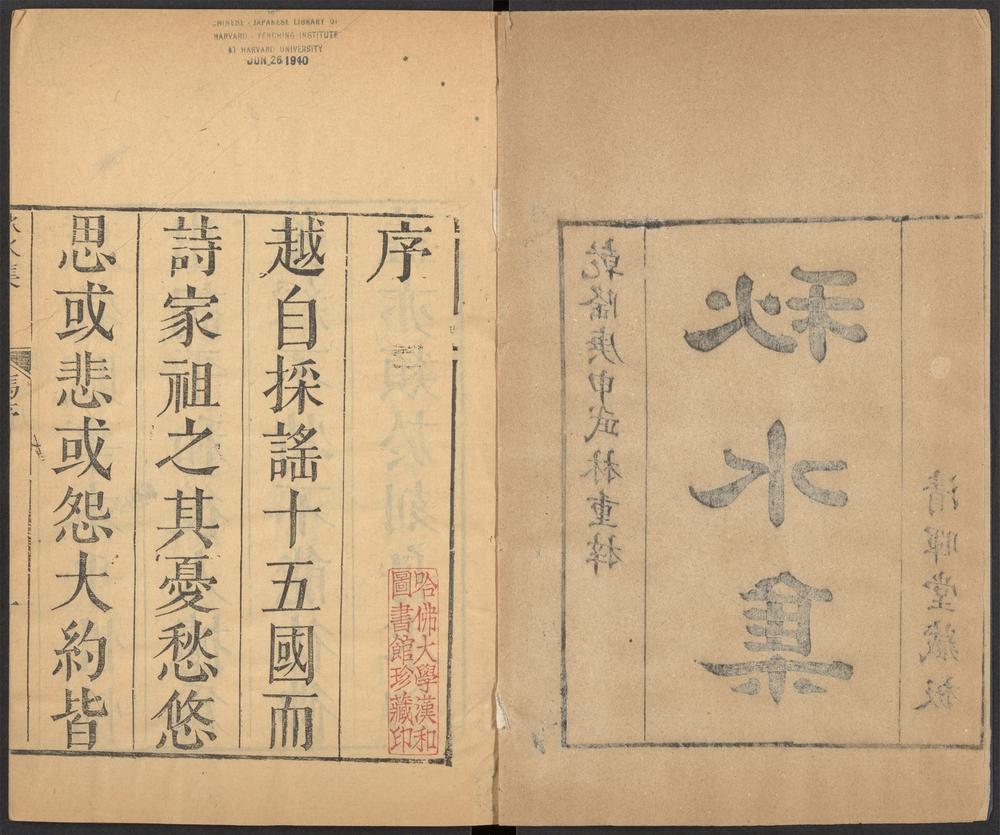 乾隆庚申武林重梓
秋水集
清暉堂藏板
CHINESE - JAPANESE LIBRARY OF
HARVARD - YENCHING INSTITUTE
AT HARVARD UNIVERSITY
JUN 26 1940
序
越自採謠十五國而
詩家祖之其憂愁悠
思或悲或怨大約皆
哈佛大學漢和
圖書館珍藏印
秋水集
一